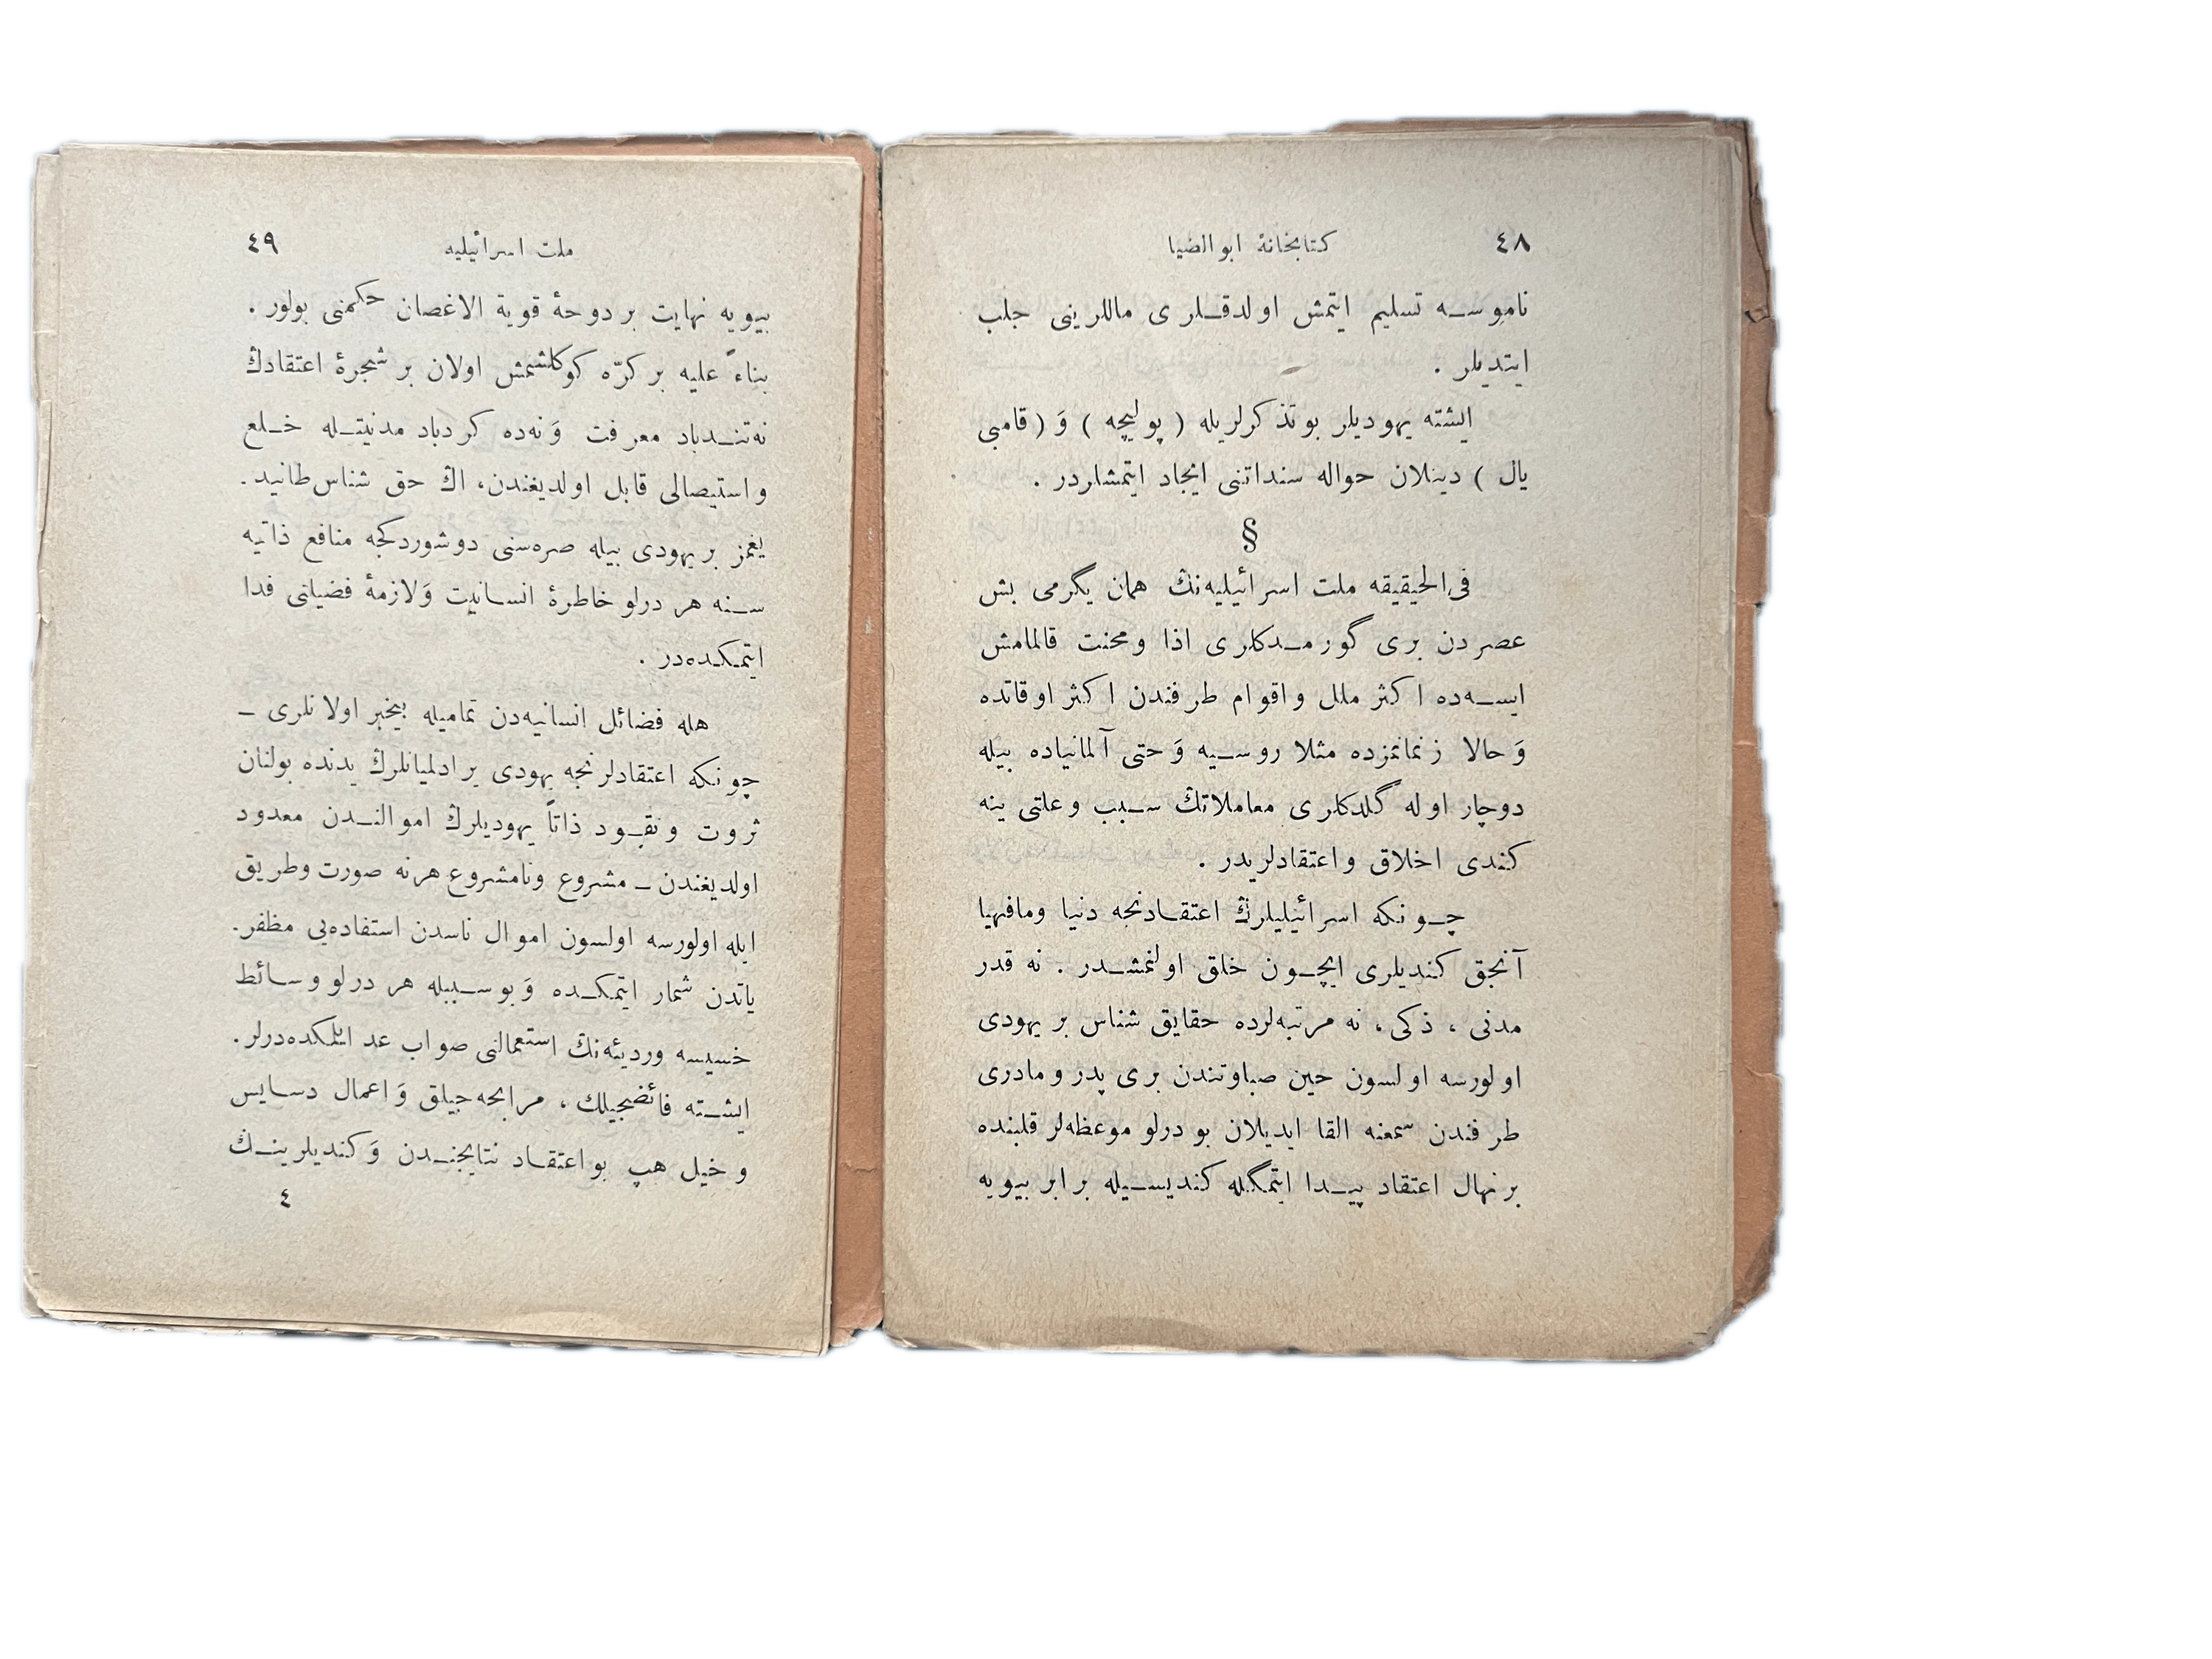 ٤٨ كتابخانهٔ ابوالضيا
ناموسه تسليم ايتمش اولدقلرى ماللرينى جلب
ايتديلر .
ايشته يهوديلر بوتذكرلريله ( پوليچه ) وَ ( قامبى
يال ) دينلان حواله سنداتنى ايجاد ايتمشلردر .
§
فى‌الحقيقه ملت اسرائيليه‌نڭ همان يگرمى بش
عصردن برى گورمدكلرى اذا ومحنت قالمامش
ايسه‌ده اكثر ملل واقوام طرفندن اكثر اوقاتده
وَ حالا زمانمزده مثلا روسيه وَ حتى آلمانياده بيله
دوچار اوله گلدكلرى معاملاتڭ سبب وعلتى ينه
كندى اخلاق واعتقادلريدر .
چونكه اسرائيليلرڭ اعتقادنجه دنيا ومافيها
آنجق كنديلرى ايچون خلق اولنمشدر . نه قدر
مدنى ، ذكى ، نه مرتبه‌لرده حقايق شناس بر يهودى
اولورسه اولسون حين صباوتندن برى پدر ومادرى
طرفندن سمعنه القا ايديلان بو درلو موعظه‌لر قلبنده
برنهال اعتقاد پيدا ايتمگله كنديسيله برابر بيويه
ملت اسرائيليه ٤٩
بيويه نهايت بر دوحهٔ قوية الاغصان حكمنى بولور .
بناءً عليه بر كرّه كوكلشمش اولان بر شجرهٔ اعتقادڭ
نه‌تندباد معرفت وَ نه‌ده كردباد مدنيتله خلع
واستيصالى قابل اولديغندن، اڭ حق شناس‌طانيد.
يغمز بر يهودى بيله صره‌سنى دوشوردكجه منافع ذاتيه
سنه هر درلو خاطرهٔ انسانيت وَلازمهٔ فضيلتى فدا
ايتمكده‌در .
هله فضائل انسانيه‌دن تماميله بيخبر اولانلرى ـ
چونكه اعتقادلرنجه يهودى يرادلميانلرڭ يدنده بولنان
ثروت ونقود ذاتاً يهوديلرڭ اموالندن معدود
اولديغندن ـ مشروع ونامشروع هرنه صورت وطريق
ايله اولورسه اولسون اموال ناسدن استفاده‌يى مظفر.
ياتدن شمار ايتمكده وَ بوسببله هر درلو وسائط
خسيسه ورديئه‌نڭ استعمالنى صواب عد ايلمكده‌درلر.
ايشته فائضجيلك ، مرابحه‌جيلق وَ اعمال دسايس
وخيل هپ بواعتقاد نتايجندن وَ كنديلرينڭ
٤